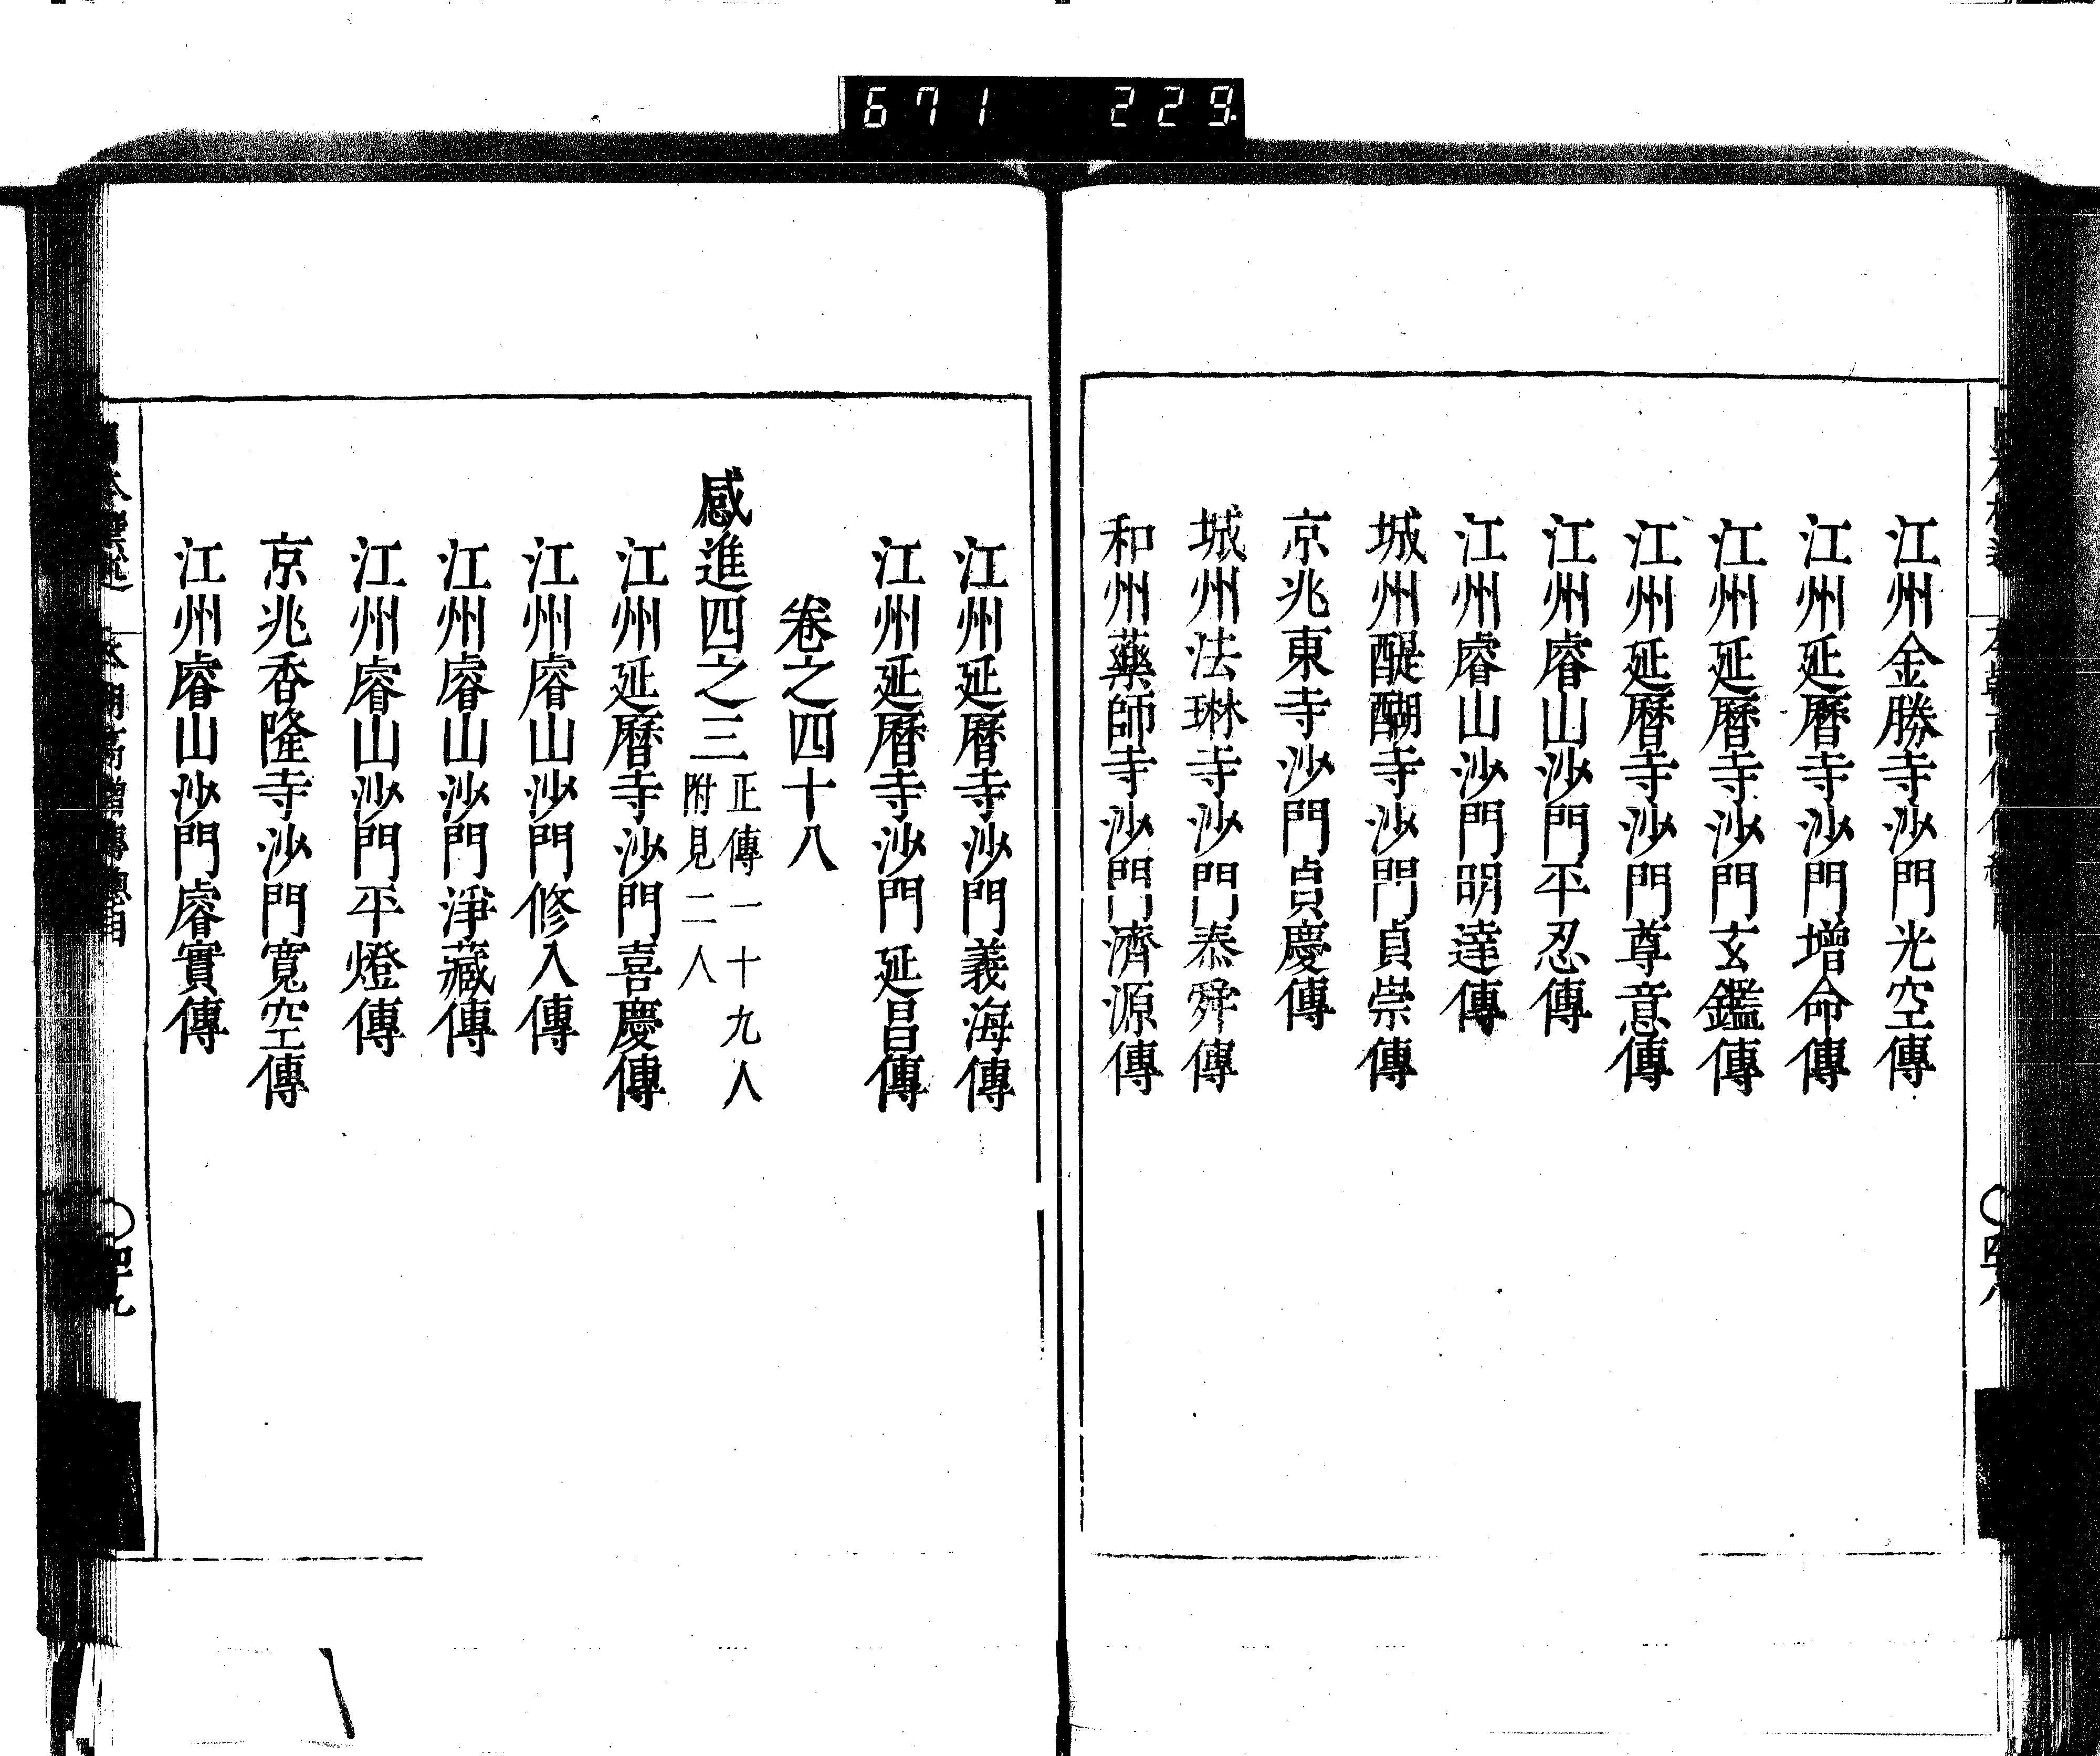 671 229
江州金勝寺沙門光空傳
江州延曆寺沙門增命傳
江州延曆寺沙門玄鑑傳
江州延曆寺沙門尊意傳
江州睿山沙門平忍傳
江州睿山沙門明達傳
城州醍醐寺沙門貞崇傳
京兆東寺沙門貞慶傳
城州法琳寺沙門泰舜傳
和州藥師寺沙門濟源傳
江州延曆寺沙門義海傳
江州延曆寺沙門延昌傳
卷之四十八
感進四之三 正傳一十九人
附見二人
江州延曆寺沙門喜慶傳
江州睿山沙門修入傳
江州睿山沙門淨藏傳
江州睿山沙門平燈傳
京兆香隆寺沙門寬空傳
江州睿山沙門睿實傳